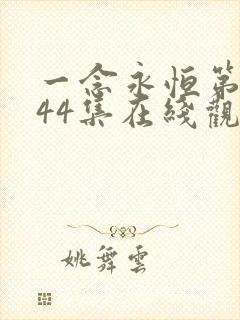 一念永恒第
44集在綫觀
姚舞雲